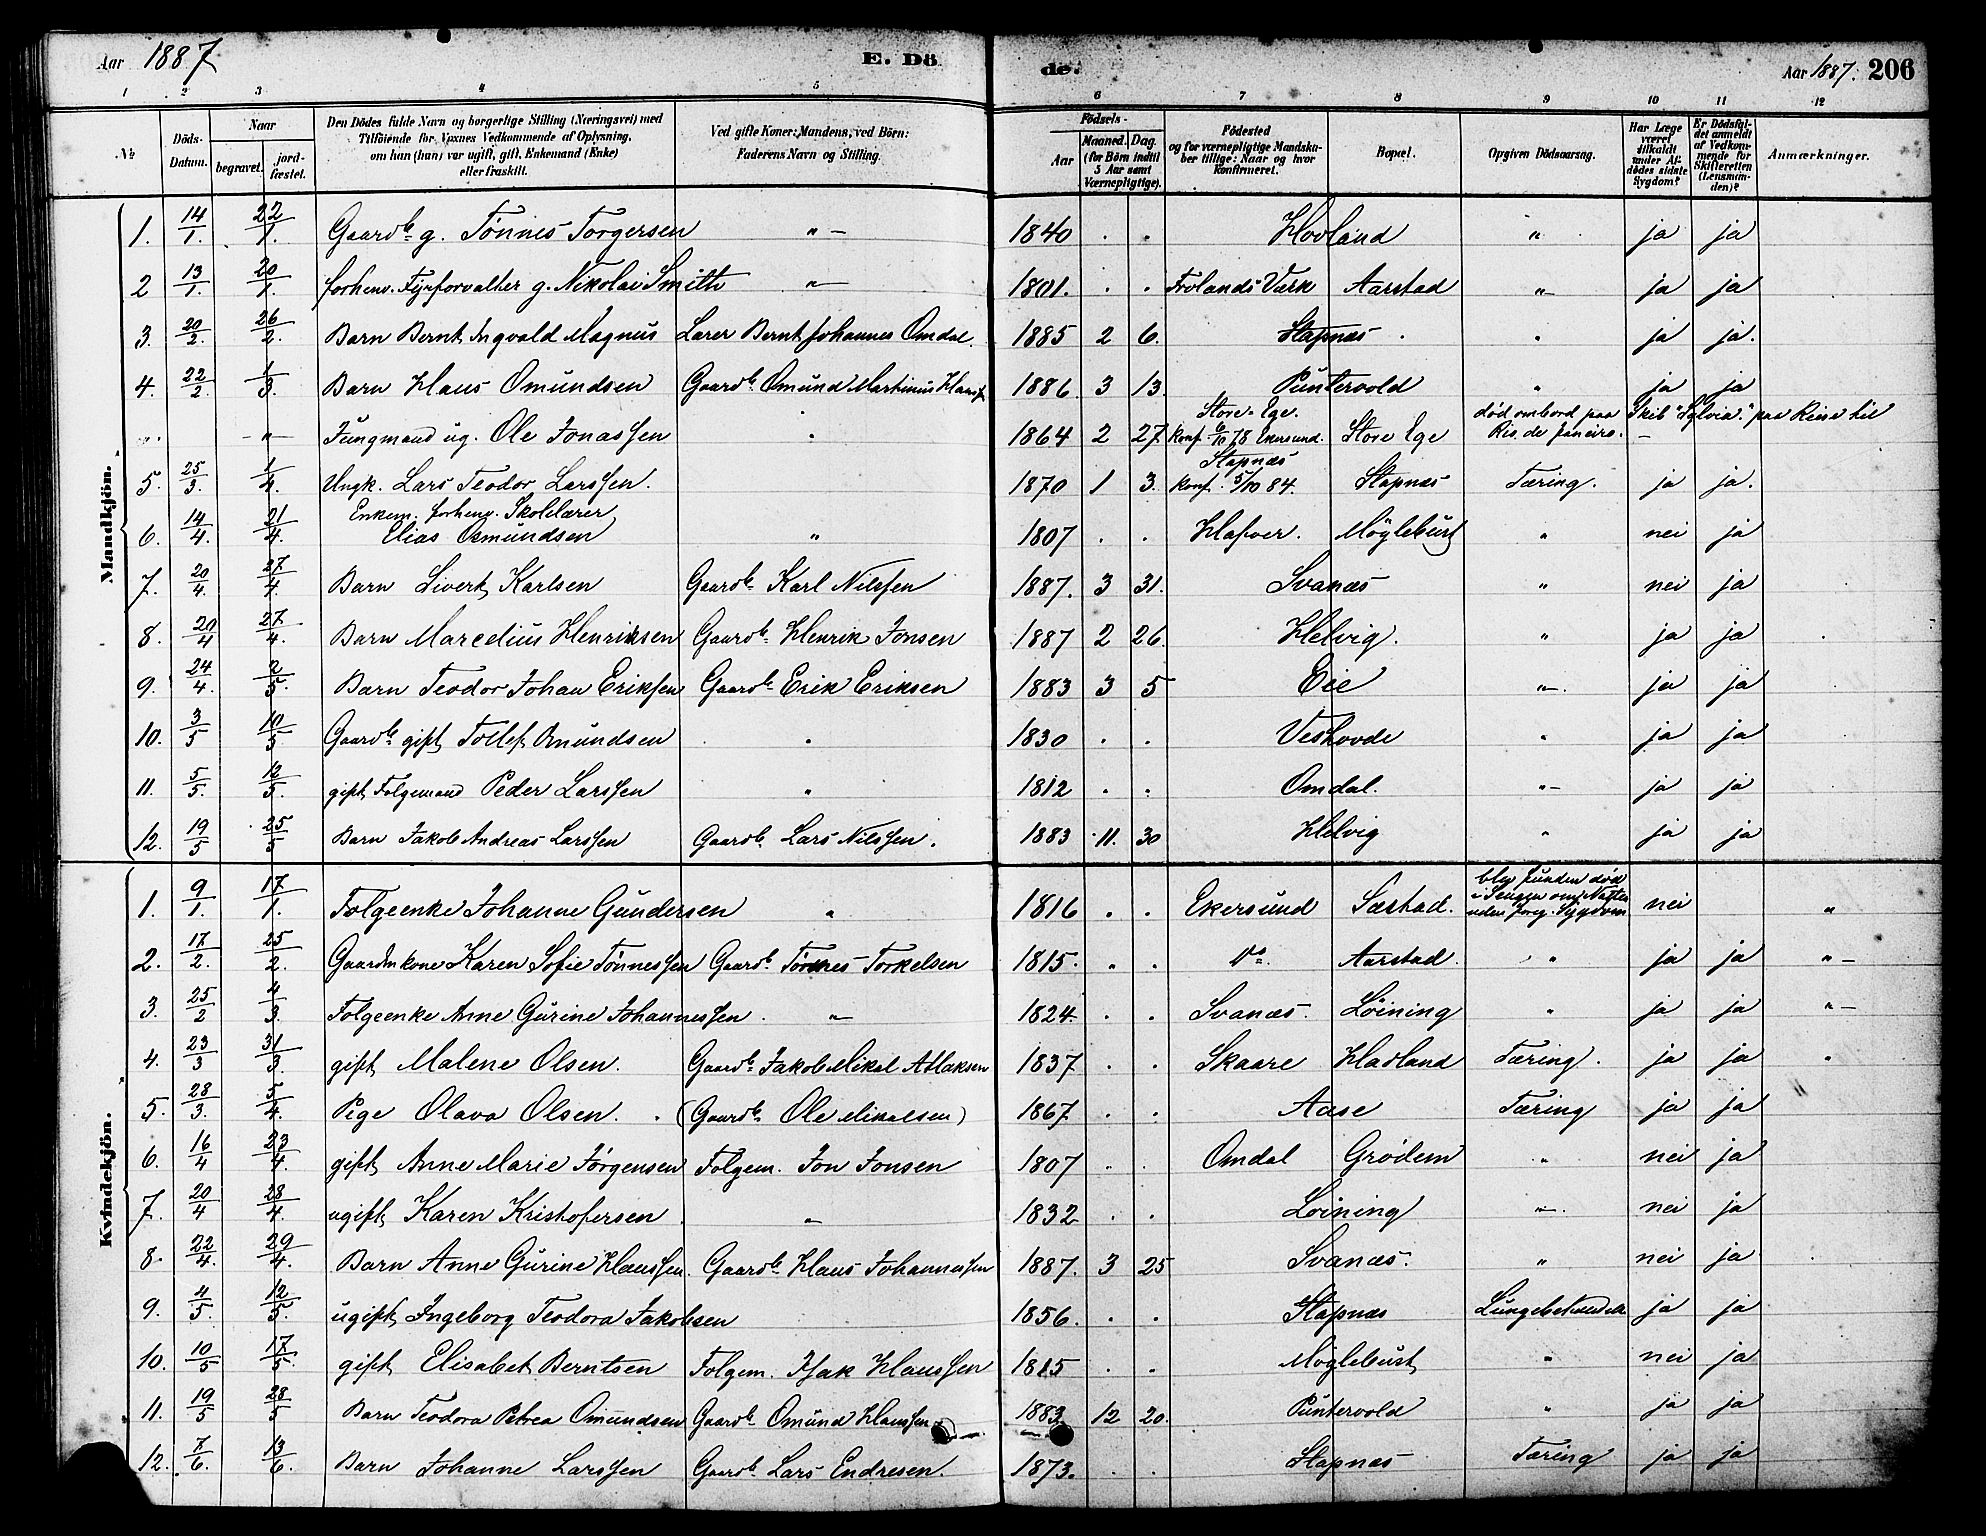 Aar 1887. E. Dö de. Aar 1887. 206
1 2 3 4 5 6 7 8 9 10 11 12
No Döds-Datum. Naar begravet. jordfæstet. Den Dödes fulde Navn og borgerlige Stilling (Næringsvei) med Tilföiende for Voxnes Vedkommende af Oplysning, om han (hun) var ugift, gift, Enkemand (Enke) eller fraskilt. Ved gifte Koner: Mandens, ved Börn: Faderens Navn og Stilling. Födsels- Aar Maaned. Dag. (for Börn indtil 5 Aar samt Værnepligtige). Födested og for værnepligtige Mandskaber tillige: Naar og hvor konfirmeret. Bopæl. Opgiven Dödsaarsag. Har Læge været tilkaldt under Afdödes sidste Sygdom? Er Dödsfaldet anmeldt af Vedkommende for Skifteretten (Lensmanden)? Anmærkninger.
Mandkjön.
1. 14/1. 22/1. Gaardbr. g. Tönnes Torgersen " - 1840 . . Hovland " ja ja
2 13/1. 20/1. forhenv. Fyrforvalter g. Nikolai Smith " - 1801. . . Frolands Værk Aarstad " - ja ja
3. 20/2. 26/2. Barn Bernt Ingvald Magnus Lærer Bernt Johannes Omdal. 1885 2 6. Stapnæs . " ja ja.
4. 22/2. 1/3. Barn Klaus Omundsen Gaardbr. Omund Martinius Klaus. 1886. 3 13. Puntervold " ja ja
" " - Jungmand ug. Ole Jonassen " 1864 2 27. Store-Ege. Konf. 6/10 78 Ekersund. Store Ege död ombord paa Skib "Sylvia." paa Reise til Rio de Janeiro. -
5. 25/3. 1/4. Ungk. Lars Teodor Larssen. 1870 1 3. Stapnæs Konf. 5/10 84. Stapnæs Tæring. ja ja.
6. 14/4. 21/4. Enkem. forhenv. Skolelærer Elias Osmundsen " 1807 . . Klapver. Möglebust " nei ja
7. 20/4. 27/4. Barn Sivert Karlsen Gaardbr. Karl Nilssen 1887. 3 31. Svanæs " nei ja
8. 20/4 27/4. Barn Marcelius Henriksen Gaardbr. Henrik Jonsen 1887 2 26. Helvig. " ja ja
9. 24/4. 2/5. Barn Teodor Johan Eriksen Gaardbr. Erik Eriksen 1883 3 5 Eie " -. ja ja
10. 3/5 10/5 Gaardbr. gift Tollef Omundsen . " 1830 . . Veshovde " ja ja
11. 5/5. 12/5. gift Folgemand Peder Larssen " 1812 . . Omdal. " - ja ja
12. 19/5 25/5 Barn Jakob Andreas Larssen Gaardbr. Lars Nilssen. 1883 11. 30 Helvig " ja ja
Kvindekjön.
1. 9/1. 17/1. Folgeenke Johanne Gundersen " 1816 . . Ekersund Sæstad. blev funden död i Sengen om Natten uden foreg. Sygdom nei "
2. 17/2. 25/2. Gaardmkone Karen Sofie Tönnessen Gaardbr. Tönnes Torkelsen 1815. . . Do. Aarstad. " ja ja " -
3. 25/2 4/3. Folgeenke Anne Gurine Johannessen. " - 1824. . . Svanæs. Löining " ja ja " -
4. 23/3 31/3. gift Malene Olsen. Gaardbr. Jakob Mikal Atlaksen 1837 . . Skaare Hadland Tæring. ja ja "
5. 28/3. 5/4. Pige Olava Olsen. (Gaardbr. Ole Mikalsen) 1867. . . Aase Tæring ja ja
6. 16/4 23/4. gift Anne Marie Jörgensen Folgem. Jon Jonsen 1807 . . Omdal Grödem " nei ja
7. 20/4 28/4. ugift Karen Kristofersen " - 1832 . . Löining " -. nei ja
8. 22/4. 29/4. Barn Anne Gurine Klaussen. Gaardbr. Klaus Johannessen 1887. 3 25 Svanæs. " nei ja
9. 4/5. 12/5. ugift Ingeborg Teodora Jakobsen 1856. . . Stapnæs Lungebetændelse ja ja
10. 10/5 17/5. gift Elisabet Berntsen Folgem. Isak Klaussen 1815 . . Möglebust " nei ja
11. 19/5 28/5 Barn Teodora Petrea Omundsen Gaardbr. Omund Klaussen 1883. 12 20. Puntervold " ja ja
12. 7/6. 13/6. Barn Johanne Larssen Gaardbr. Lars Endresen. 1873. . . Stapnæs Tæring ja ja